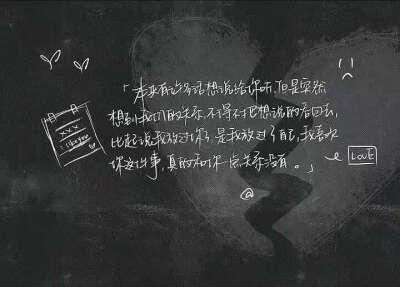 「本来有许多话想说给你听,但是突然
想到我们的关系,不得不把想说的吞回去,
比起说我放过你了,是我放过了自己,我喜欢
你这件事,真的和你一点关系没有。」
XXX
LOVE
@